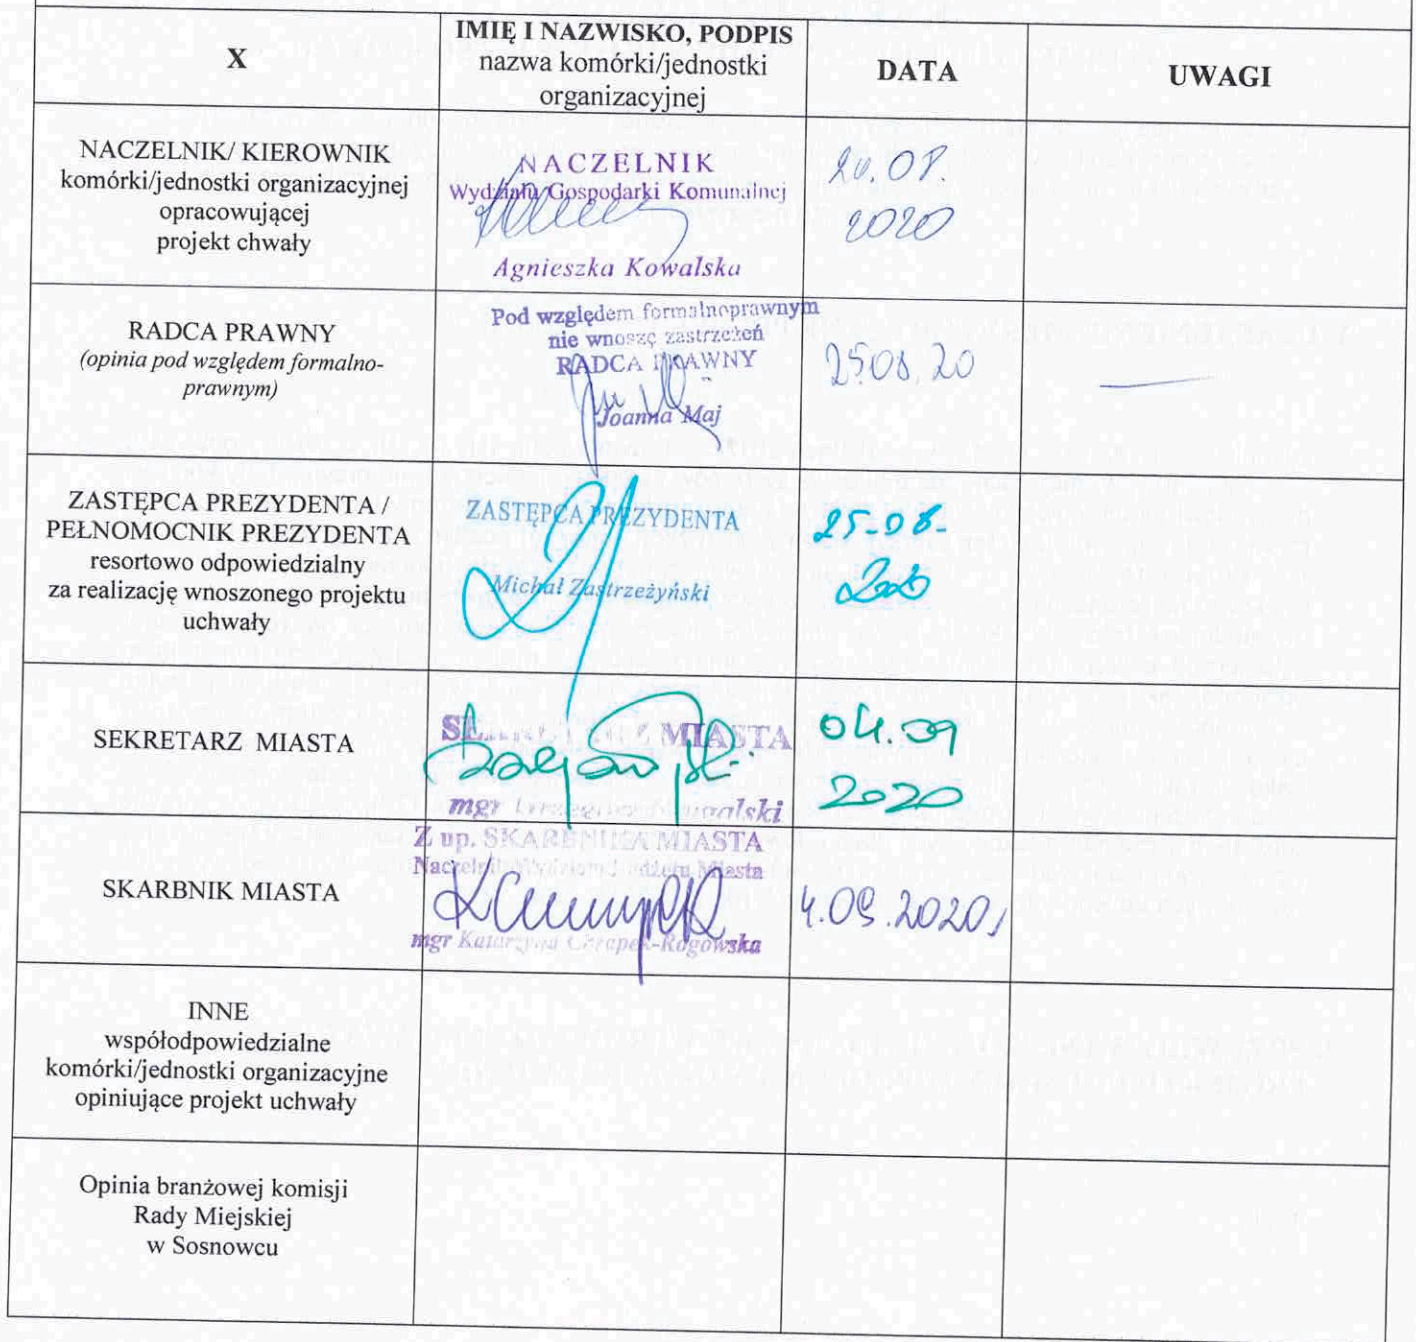 X
IMIĘ I NAZWISKO, PODPIS
nazwa komórki/jednostki
organizacyjnej
DATA
UWAGI
NACZELNIK/ KIEROWNIK
komórki/jednostki organizacyjnej
opracowującej
projekt chwały
NACZELNIK
Wydziału Gospodarki Komunalnej
Agnieszka Kowalska
20.08.
2020
RADCA PRAWNY
(opinia pod względem formalno-
prawnym)
Pod względem formalnoprawnym
nie wnoszę zastrzeżeń
RADCA PRAWNY
Joanna Maj
25.08.20
ZASTĘPCA PREZYDENTA /
PEŁNOMOCNIK PREZYDENTA
resortowo odpowiedzialny
za realizację wnoszonego projektu
uchwały
ZASTĘPCA PREZYDENTA
Michał Zastrzeżyński
25-08-
2020
SEKRETARZ MIASTA
SEKRETARZ MIASTA
mgr
04.09
2020
SKARBNIK MIASTA
Z up. SKARBNIKA MIASTA
Naczelnik Wydziału Budżetu Miasta
mgr Katarzyna Chrapek-Rogowska
4.09.2020r
INNE
współodpowiedzialne
komórki/jednostki organizacyjne
opiniujące projekt uchwały
Opinia branżowej komisji
Rady Miejskiej
w Sosnowcu